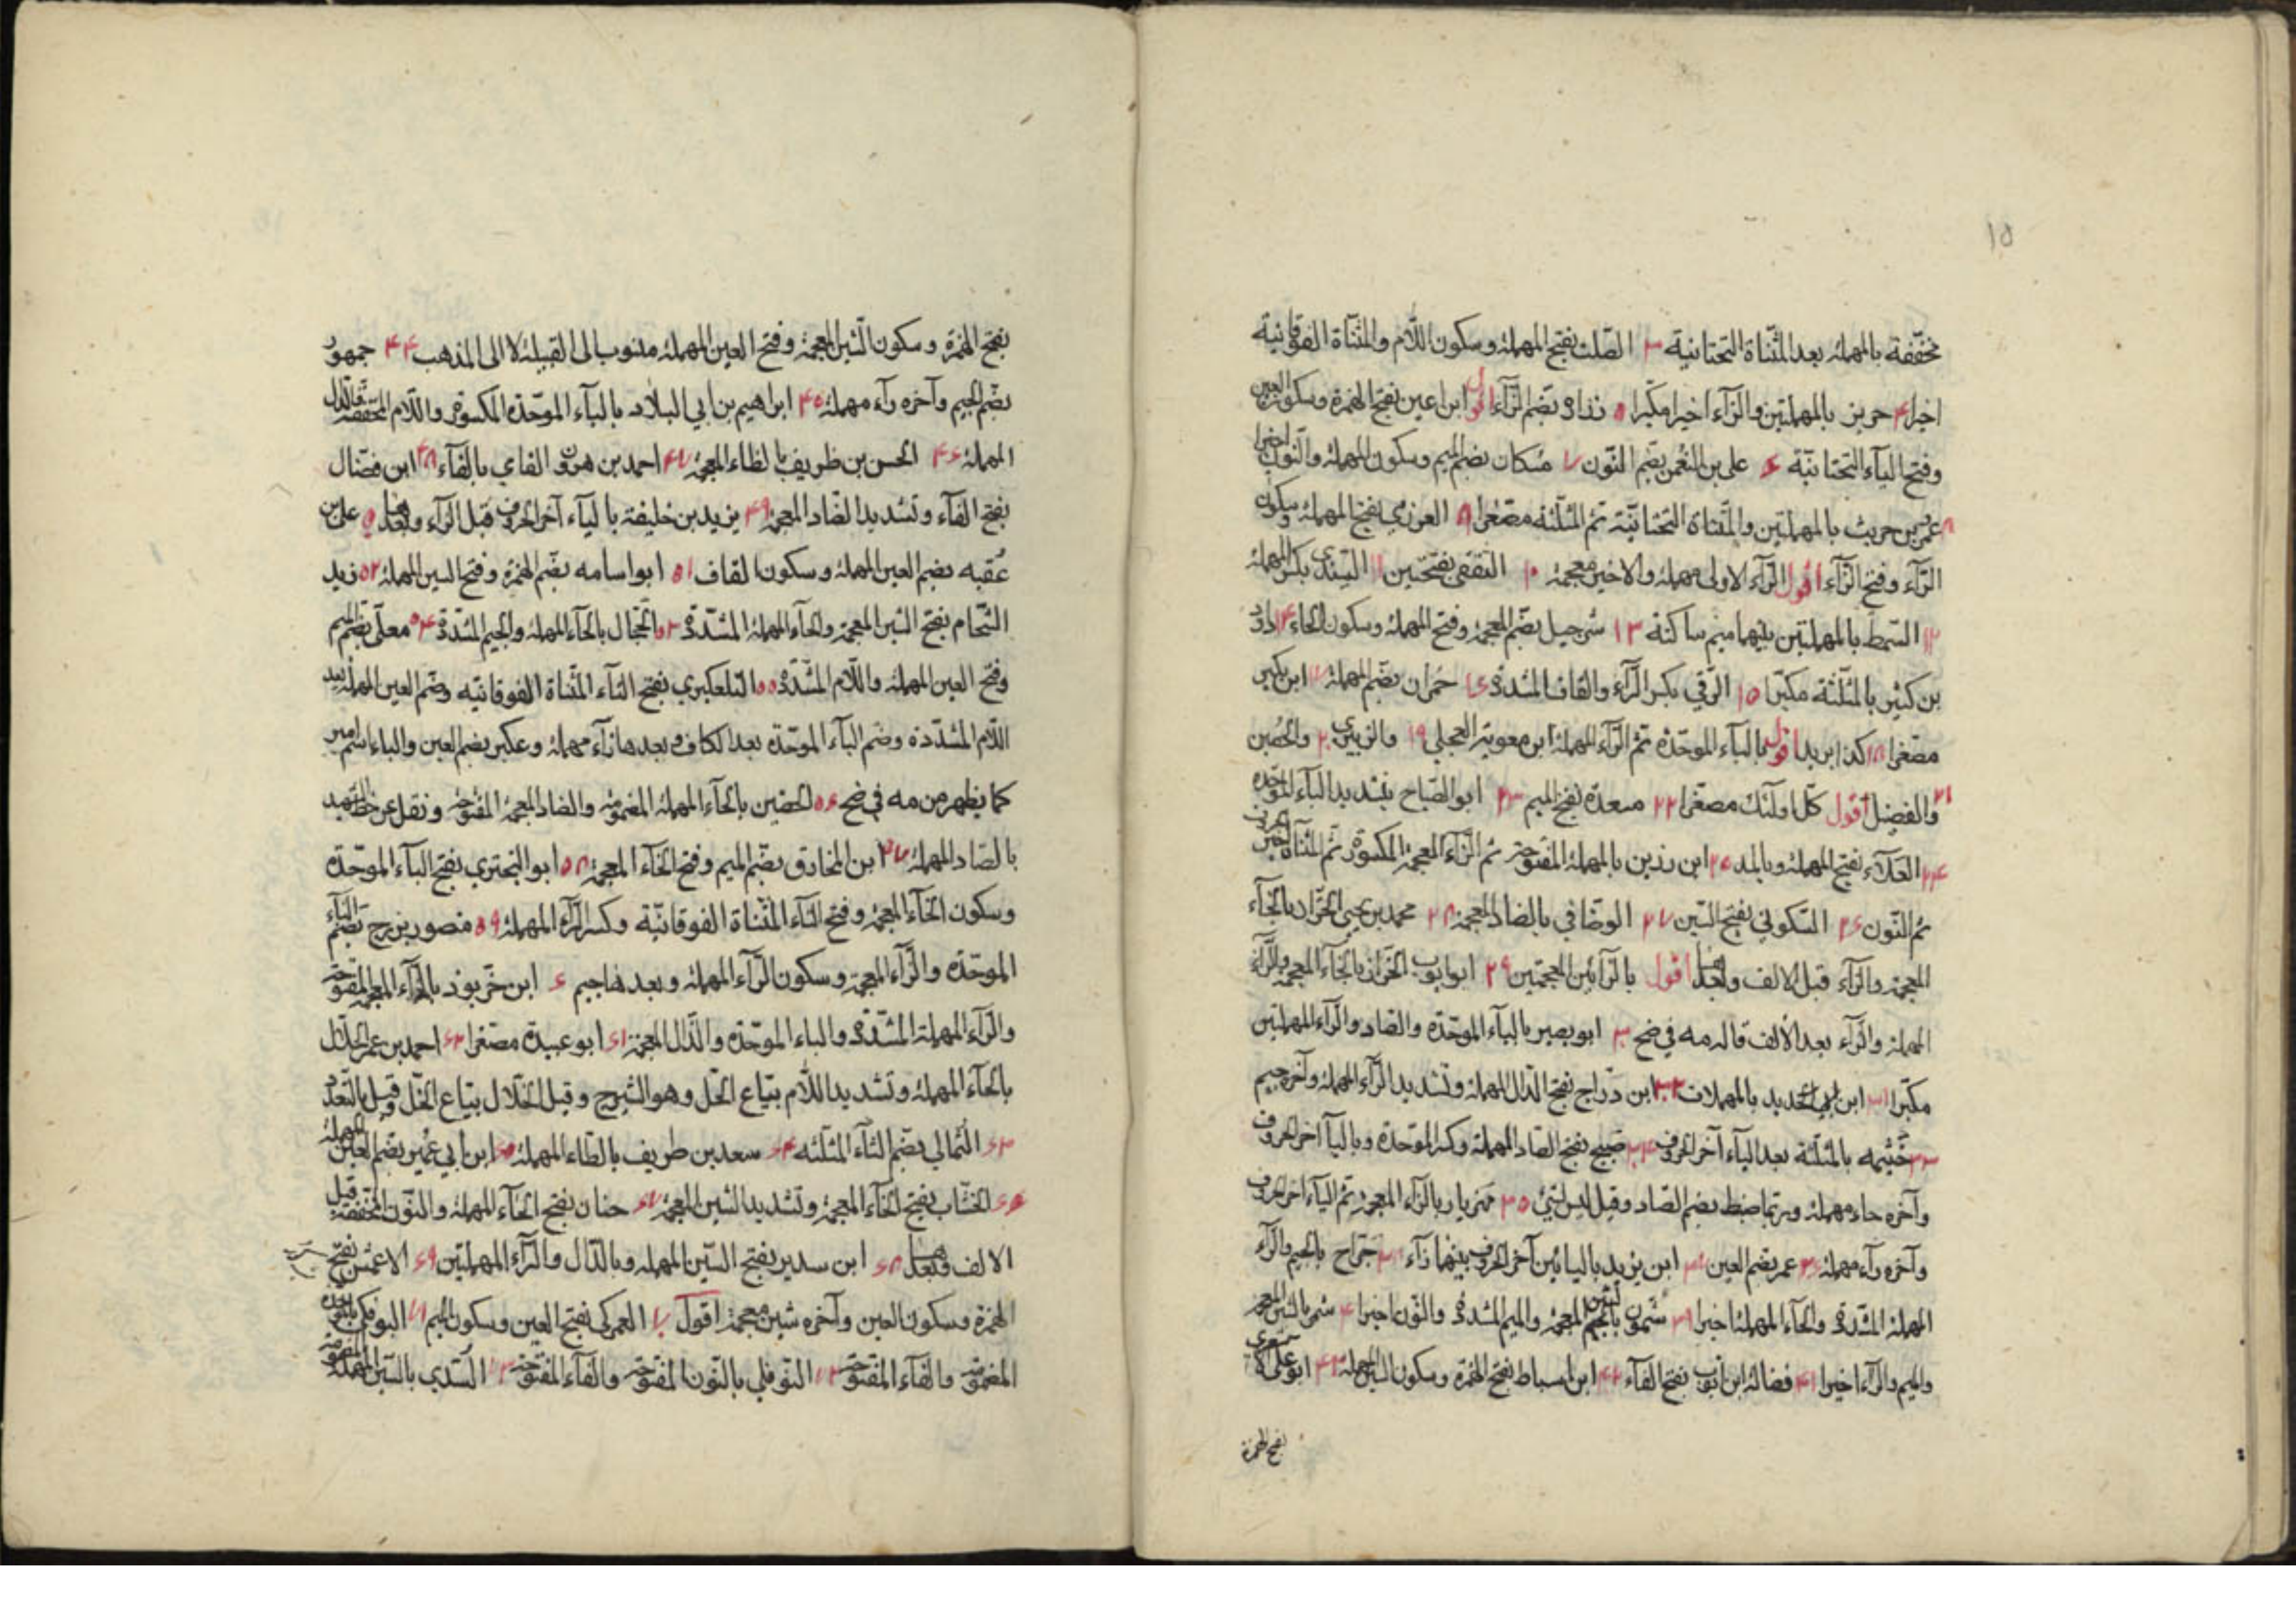 ١٥
مخففة بالمهملة بعد المثناة التحتانية ٣ الصلت بفتح المهملة وسكون اللام والمثناة الفوقانية
اخيرا ٤ حريز بالمهملتين والزاء اخيرا مكبرا ٥ زرارة بضم الزاء اقول ابن اعين بفتح الهمزة وسكون العين
وفتح الياء التحتانية ۶ على بن النعمن بضم النون ٧ مسكان بضم الميم وسكون المهملة والنون اخيرا
٨ عمرو بن حريث بالمهملتين والمثناة التحتانية ثم المثلثة مصغرا ٩ العرزمي بفتح المهملة وسكون
الراء وفتح الزاء اقول الراء الاولى مهملة والاخير معجمة ١٠ الثقفى بفتحتين ١١ السندي بكسر المهملة
١٢ السمط بالمهملتين بينهما ميم ساكنة ١٣ شرحبيل بضم المعجمة وفتح المهملة وسكون الحاء ١٤ داود
بن كثير بالمثلثة مكبرا ١٥ الرقي بكسر الراء والقاف المشددة ١۶ حمران بضم المهملة ١٧ ابن بكير
مصغرا ١٨ كذا بريد اقول بالباء الموحدة ثم الراء المهملة ابن معوية العجلي ١٩ والزبيري ٢٠ والحصين
٢١ والفضيل اقول كل اولئك مصغرا ٢٢ مسعدة بفتح الميم ٢٣ ابو الصباح بتشديد الباء الموحدة
٢٤ العلاء بفتح المهملة وبالمد ٢٥ ابن رزين بالمهملة المفتوحة ثم الزاء المعجمة المكسورة ثم المثناة
ثم النون ٢۶ السكوني بفتح السين ٢٧ الوصافي بالضاد المعجمة ٢٨ محمد بن يحيى الخزاز بالخاء
المعجمة والزاء قبل الالف وبعدها اقول بالزائين المعجمتين ٢٩ ابو ايوب الخزاز بالخاء المعجمة والراء
المهملة والزاء بعد الالف قاله مه في ضح ٣٠ ابو بصير بالباء الموحدة والصاد والراء المهملتين
مكبرا ٣١ ابن ابي الحديد بالمهملات ٣٢ ابن دراج بفتح الدال المهملة وتشديد الراء المهملة وآخره جيم
٣٣ خيثمه بالمثلثة بعد الياء آخر الحروف ٣٤ صبيح بفتح الصاد المهملة وكسر الموحدة وبالياء اخر الحروف
وآخره حاء مهملة وربما ضبط بضم الصاد وقيل ليس بشيء ٣٥ مهزيار بالزاء المعجمة ثم الياء اخر الحروف
وآخره راء مهملة ٣۶ عمر بضم العين ٣٧ ابن يزيد باليائين آخر الحروف بينهما زاء ٣٨ جراح بالجيم والراء
المهملة المشددة والحاء المهملة اخيرا ٣٩ شمون بالشين المعجمة والميم المشددة والنون اخيرا ٤٠ شمر بالشين المعجمة
والميم والراء اخيرا ٤١ فضالة ابن ايوب بفتح الفاء ٤٢ ابن اسباط بفتح الهمزة وسكون السين المهملة ٤٣ ابو على الاشعرى
بفتح الهمزة
بفتح الهمزة وسكون الشين المعجمة وفتح العين المهملة منسوب الى القبيلة لا الى المذهب ٤٤ جمهور
بضم الجيم وآخره راء مهملة ٤٥ ابراهيم بن ابي البلاد بالباء الموحدة المكسورة واللام المخففة والدال
المهملة ٤۶ الحسن بن ظريف بالظاء المعجمة ٤٧ احمد بن هرون الفاي بالفاء ٤٨ ابن فضال
بفتح الفاء وتشديد الضاد المعجمة ٤٩ يزيد بن خليفة بالياء آخر الحروف قبل الزاء وبعدها ٥٠ على بن
عقبه بضم العين المهملة وسكون القاف ٥١ ابو اسامه بضم الهمزة وفتح السين المهملة ٥٢ زيد
الشحام بفتح الشين المعجمة والحاء المهملة المشددة ٥٣ الحجال بالحاء المهملة والجيم المشددة ٥٤ معلى بضم الميم
وفتح العين المهملة واللام المشددة ٥٥ التلعكبري بفتح التاء المثناة الفوقانيه وضم العين المهملة بعد
اللام المشددة وضم الباء الموحدة بعد الكاف وبعدها راء مهملة وعكبر بضم العين والباء اسم
كما يظهر من مه في ضح ٥۶ الحضين بالحاء المهملة المضمومة والضاد المعجمة المفتوحة ونقل عن خط الشهيد
بالصاد المهملة ٥٧ ابن المخارق بضم الميم وفتح الخاء المعجمة ٥٨ ابو البختري بفتح الباء الموحدة
وسكون الخاء المعجمة وفتح التاء المثناة الفوقانية وكسر الراء المهملة ٥٩ منصور بزرج بضم الباء
الموحدة والزاء المعجمة وسكون الراء المهملة وبعدها جيم ۶٠ ابن خربوذ بالخاء المعجمة المفتوحة
والراء المهملة المشددة والباء الموحدة والذال المعجمة ۶١ ابو عبيدة مصغرا ۶٢ احمد بن عمر الحلال
بالحاء المهملة وتشديد اللام بياع الحل وهو الشيرج وقيل الخلال بياع الخل وقيل بالتعدد
۶٣ الثمالي بضم الثاء المثلثه ۶٤ سعد بن طريف بالطاء المهملة ۶٥ ابن ابي عمير بضم العين المهملة
۶۶ الخشاب بفتح الخاء المعجمة وتشديد الشين المعجمة ۶٧ حنان بفتح الحاء المهملة والنون المخففة قبل
الالف وبعدها ۶٨ ابن سدير بفتح السين المهمله وبالدال والراء المهملتين ۶٩ الاعمش بفتح
الهمزة وسكون العين وآخره شين معجمة اقول ٧٠ العمركي بفتح العين وسكون الميم ٧١ البوفكي بالموحدة
المضمومة والفاء المفتوحة ٧٢ النوفلي بالنون المفتوحة والفاء المفتوحة ٧٣ السدي بالسين المهملة المضمومة